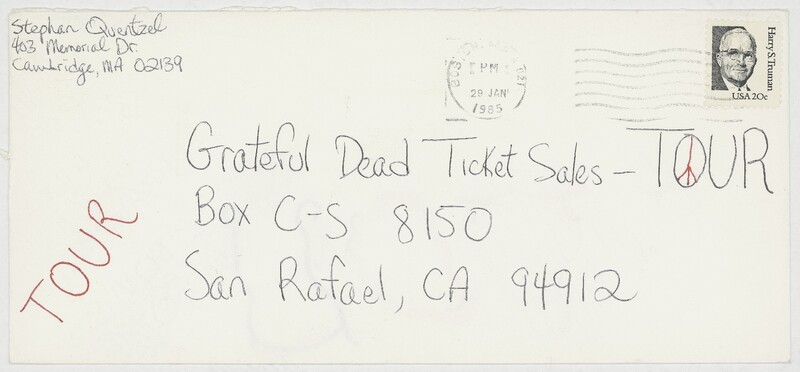 Stephan Quentzel
403 Memorial Dr.
Cambridge, MA 02139
PM
29 JAN
1985
Harry S. Truman
USA 20c
Grateful Dead Ticket Sales – TOUR
Box C-S 8150
San Rafael, CA 94912
TOUR